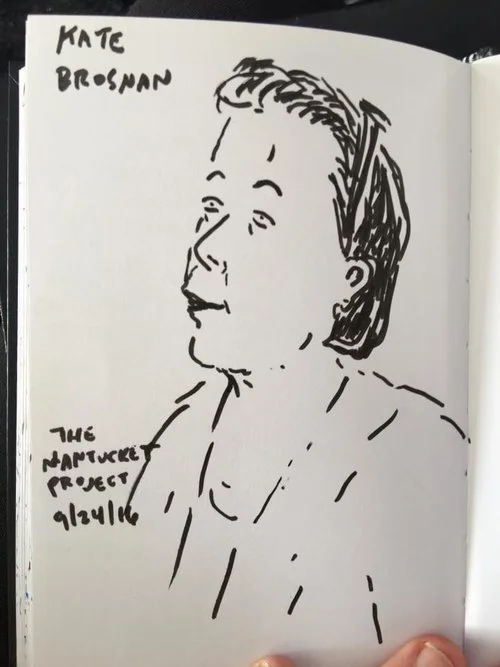 KATE
BROSNAN
THE
NANTUCKET
PROJECT
9/24/16